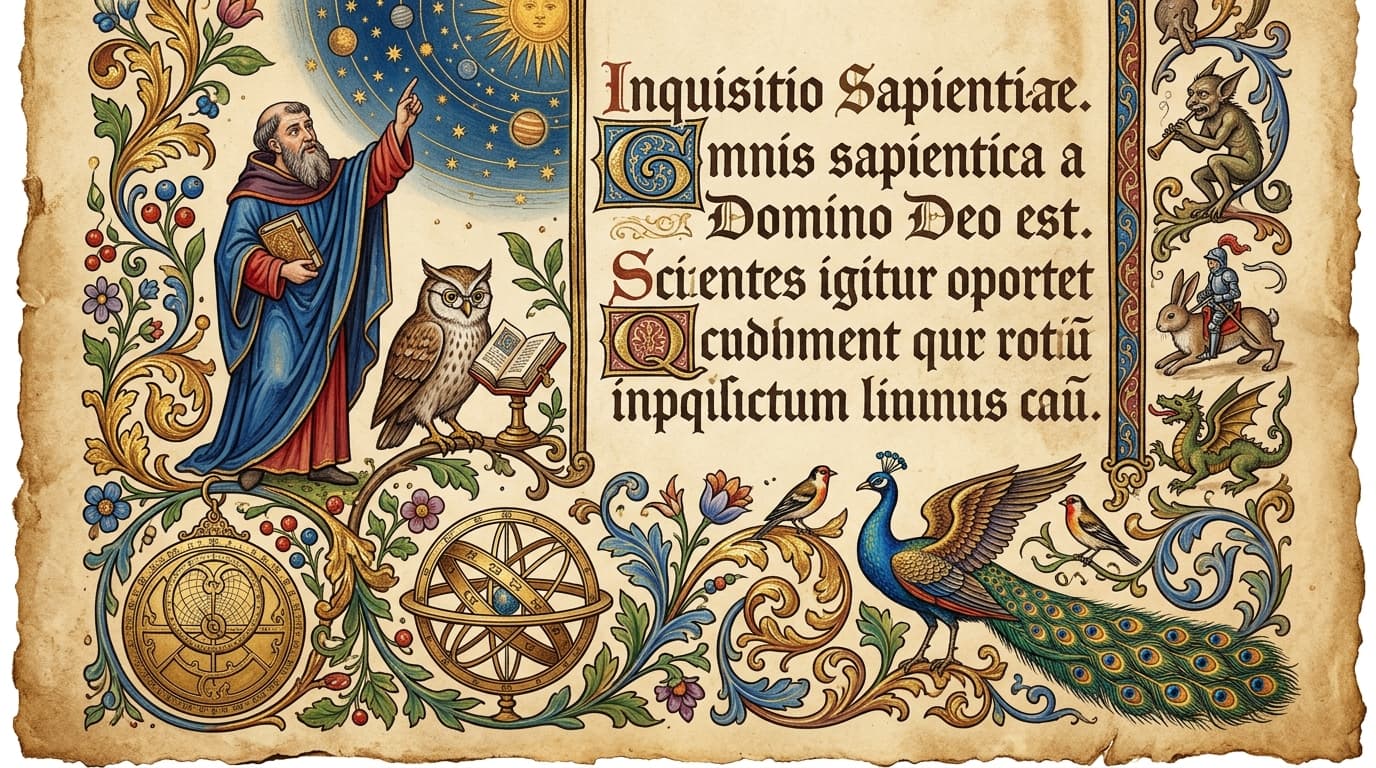 Inquisitio Sapientiae.
Gmnis sapientica a
Domino Deo est.
Scientes igitur oportet
Qcudhment qur rotiū
inpqilictum linmus caū.